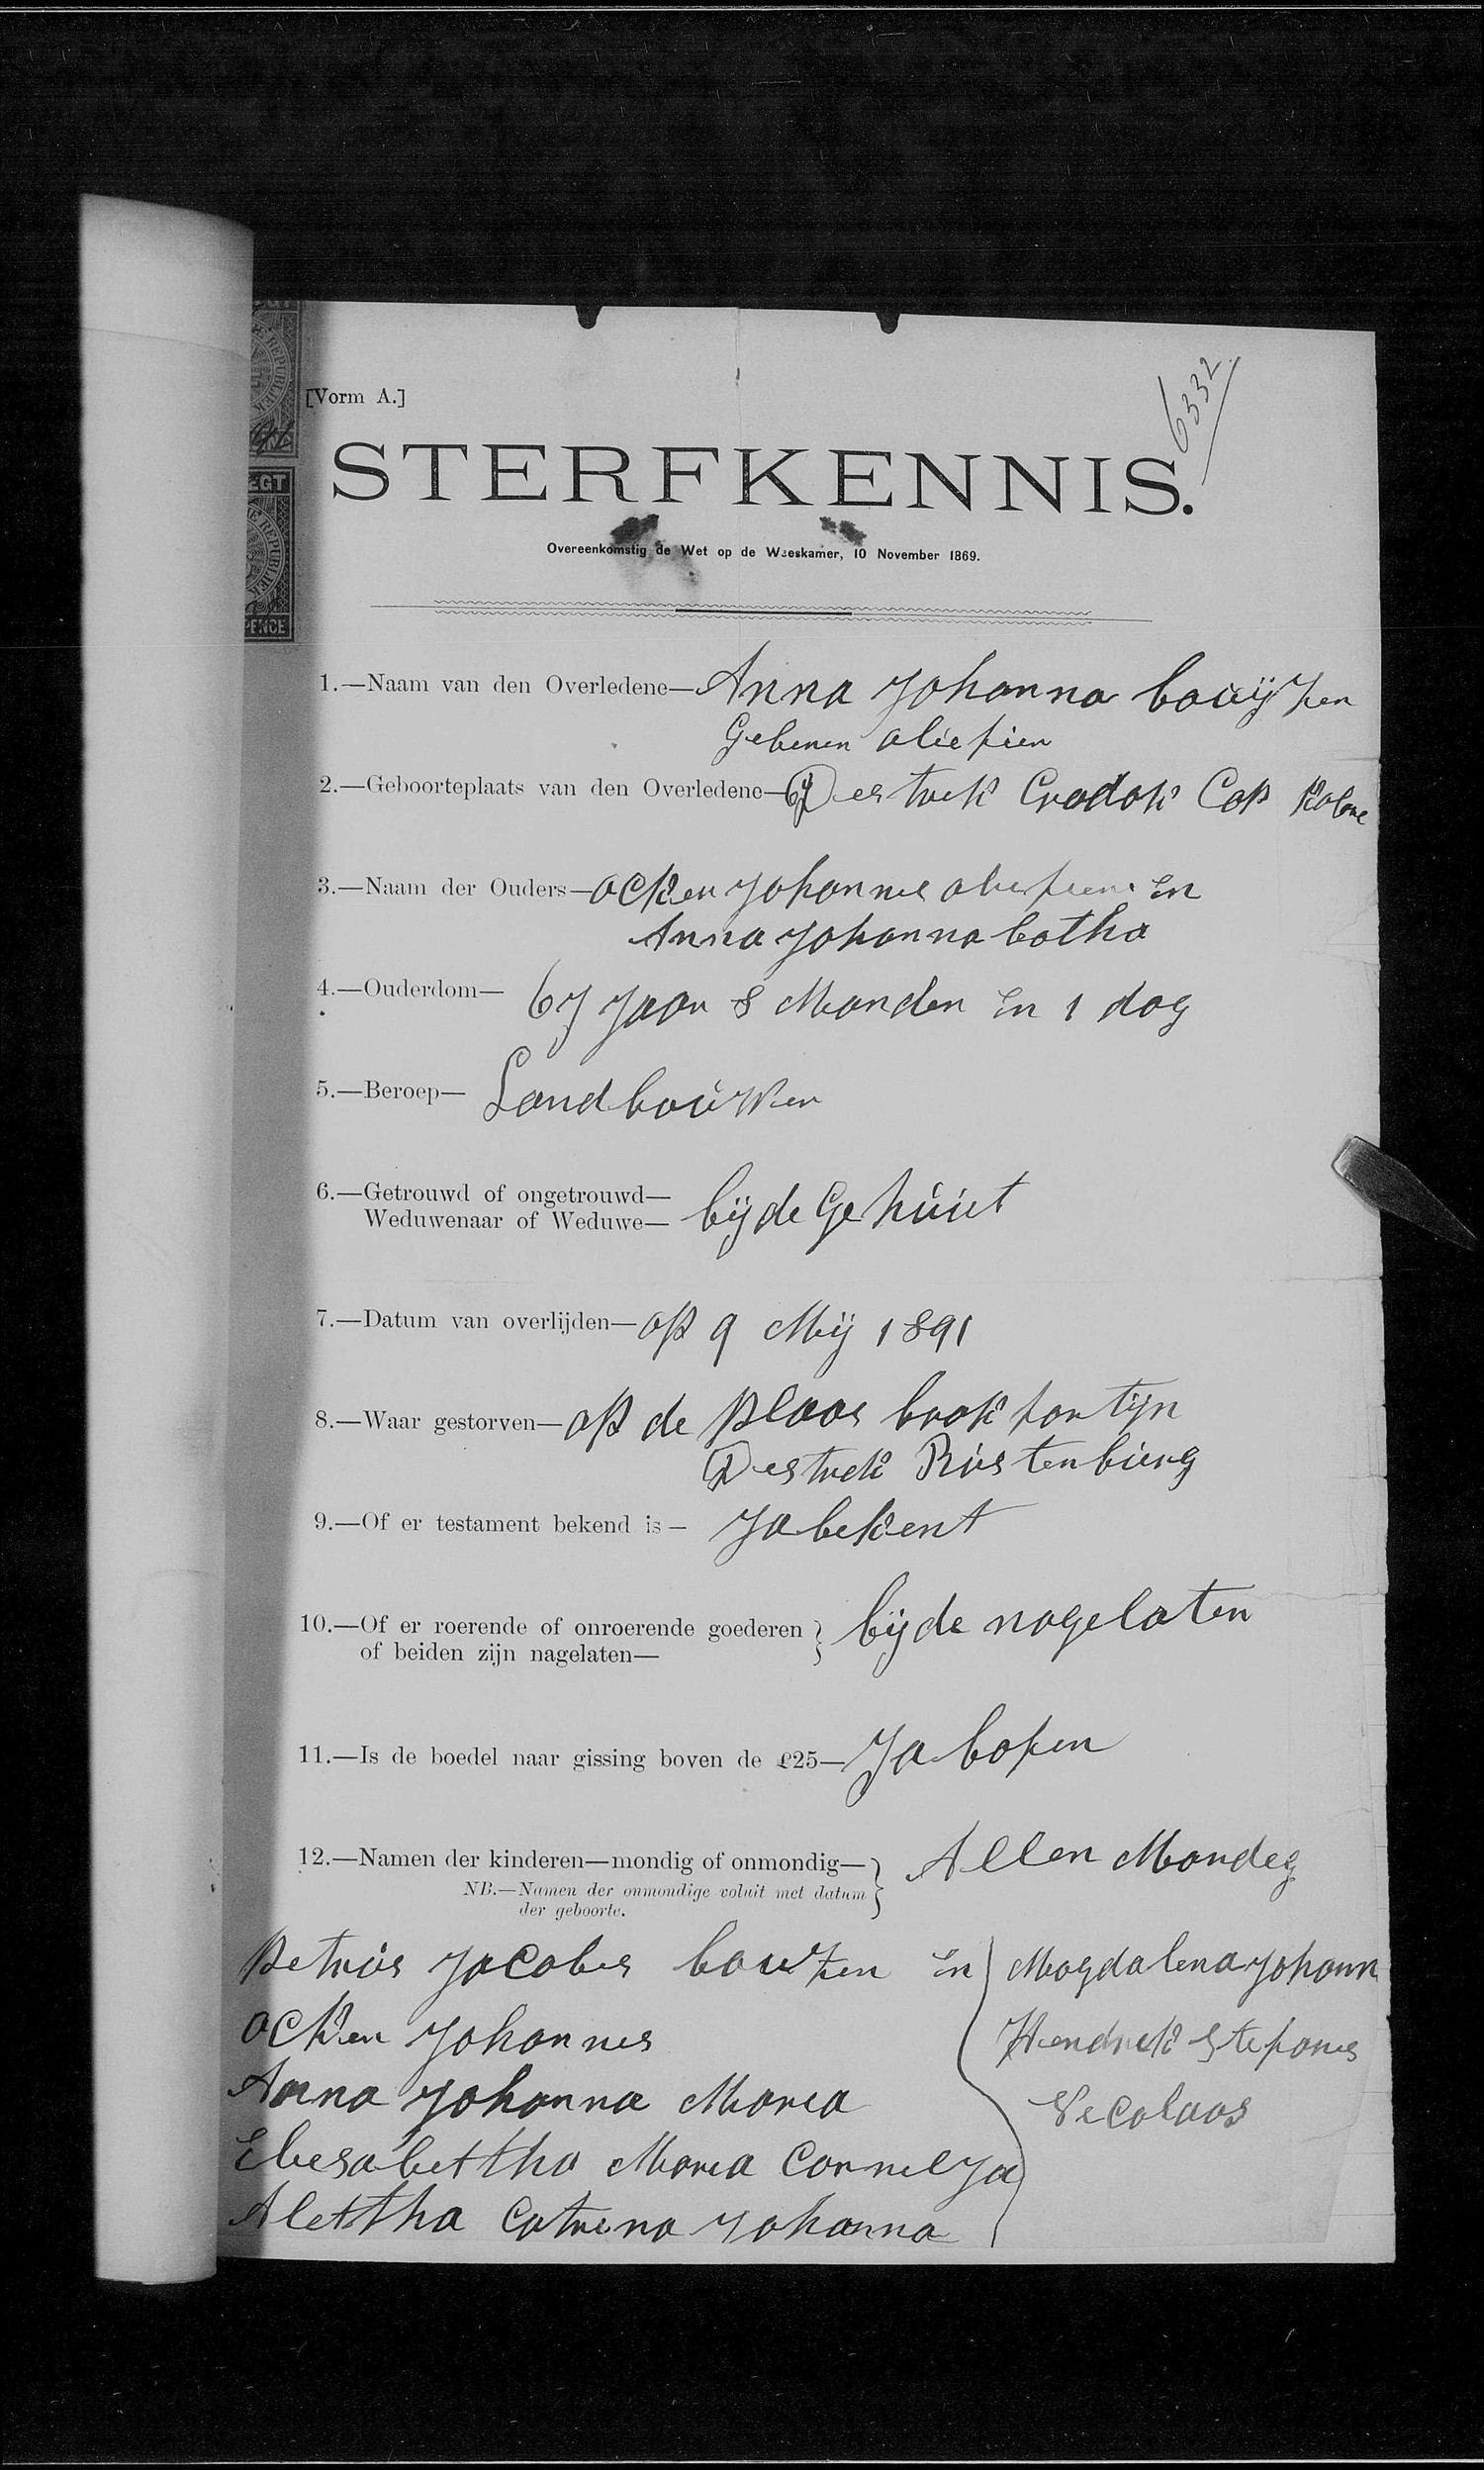 6332
[Vorm A.]
STERFKENNIS.
Overeenkomstig de Wet op de Weeskamer, 10 November 1869.
EGT
REPUBLIEK
PENCE
1.—Naam van den Overledene— Anna Johanna
Geboren oliefier
2.—Geboorteplaats van den Overledene— Destrek Cradok Cap Kolone
3.—Naam der Ouders— Ocker Johannes oliefier En
Anna Johanna botha
4.—Ouderdom— 67 Jaar 8 Manden En 1 dag
5.—Beroep— Landbouwer
6.—Getrouwd of ongetrouwd—
Weduwenaar of Weduwe— bijde Gehuut
7.—Datum van overlijden— op 9 Mij 1891
8.—Waar gestorven— op de plaas brokfontijn
Destrek Rustenburg
9.—Of er testament bekend is— Ja bekent
10.—Of er roerende of onroerende goederen
of beiden zijn nagelaten— bijde nagelaten
11.—Is de boedel naar gissing boven de £25— Ja bofen
12.—Namen der kinderen—mondig of onmondig— Allen Mondeg
NB.—Namen der onmondige voluit met datum
der geboorte.
Petrus Jacobus En
Ocker Johannes
Anna Johanna Maria
Elesabettha Maria Cornelya
Alettha Catrina Johanna
Magdalena Johann
Hendrek Stefanes
Necolaas